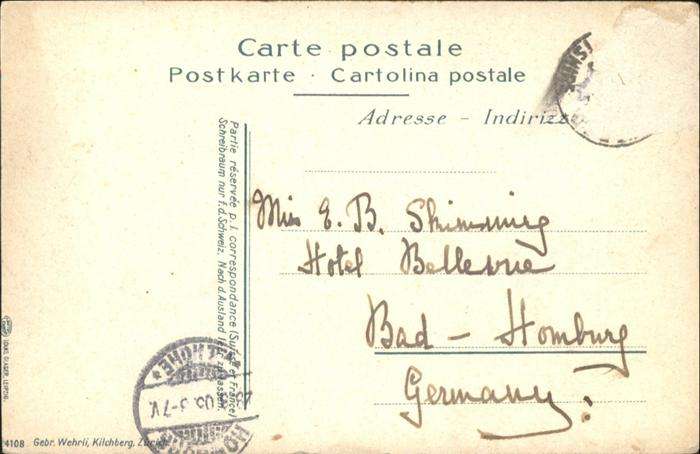 Carte postale
Postkarte · Cartolina postale
Adresse – Indirizz
Partie réservée p. l. correspondance (Suisse et France)
Schreibraum nur f. d. Schweiz. Nach d. Ausland leer lassen.
Miss E. B. Skimming
Hotel Bellevue
Bad – Homburg
Germany.
HÖHE
05. 6-7V.
4108 Gebr. Wehrli, Kilchberg, Zürich